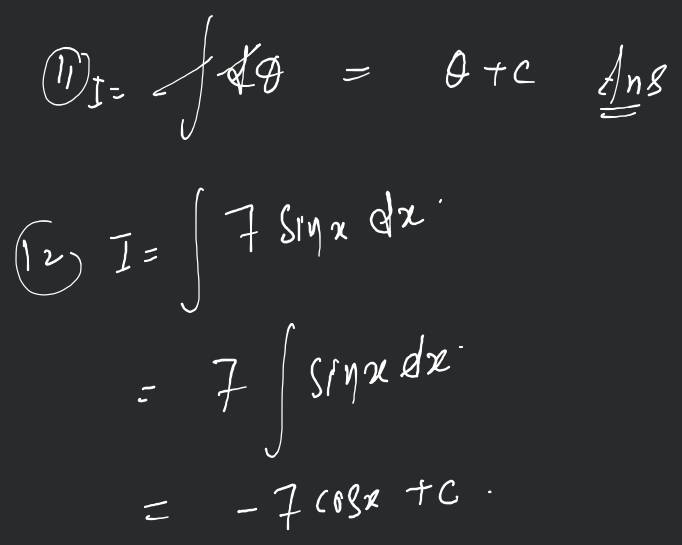 (11) I = ∫ dθ = θ + c Ans
(12) I = ∫ 7 sin x dx.
= 7 ∫ sin x dx.
= -7 cos x + c.